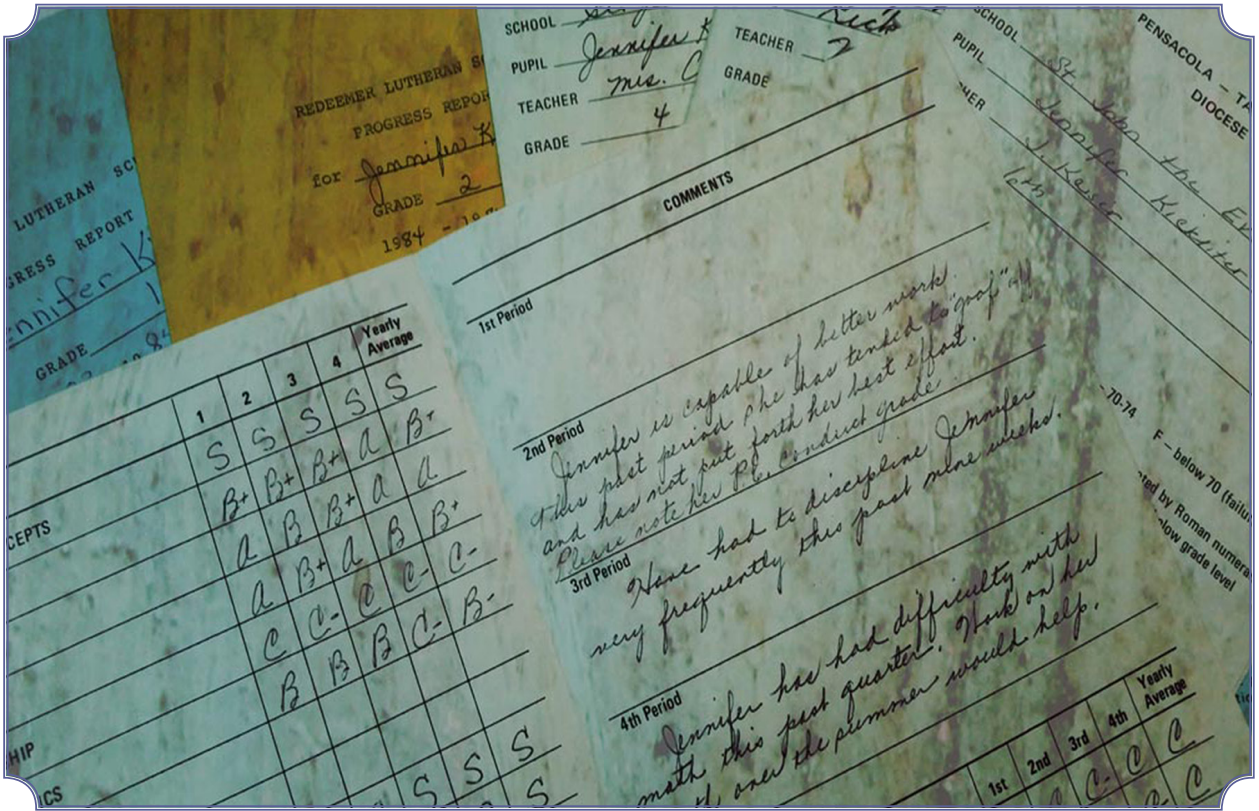 LUTHERAN SC
GRESS REPORT
ennifer K
GRADE 1
REDEEMER LUTHERAN S
PROGRESS REPOR
for Jennifer K
GRADE 2
1984 - 198
SCHOOL
PUPIL Jennifer K
TEACHER Mrs. C
GRADE 4
TEACHER
GRADE 2
SCHOOL St John the Ev
PUPIL Jennifer Kickliter
HER J. Keiser
6th
PENSACOLA - TA
DIOCESE
70-74
F - below 70 (failu
ted by Roman numera
elow grade level
COMMENTS
1st Period
2nd Period
Jennifer is capable of better work.
This past period she has tended to "goof"
and has not put forth her best effort.
Please note her P.E. conduct grade.
3rd Period
Have had to discipline Jennifer
very frequently this past nine weeks.
4th Period
Jennifer has had difficulty with
math this past quarter. Work on her
over the summer would help.
1 2 3 4 Yearly
Average
S S S S S
CEPTS B+ B+ B+ A B+
A B B+ A A
A B+ A B B+
C C- C C- C-
B B B C- B-
HIP
ICS S S S
S
1st 2nd 3rd 4th Yearly
Average
C- C C
C